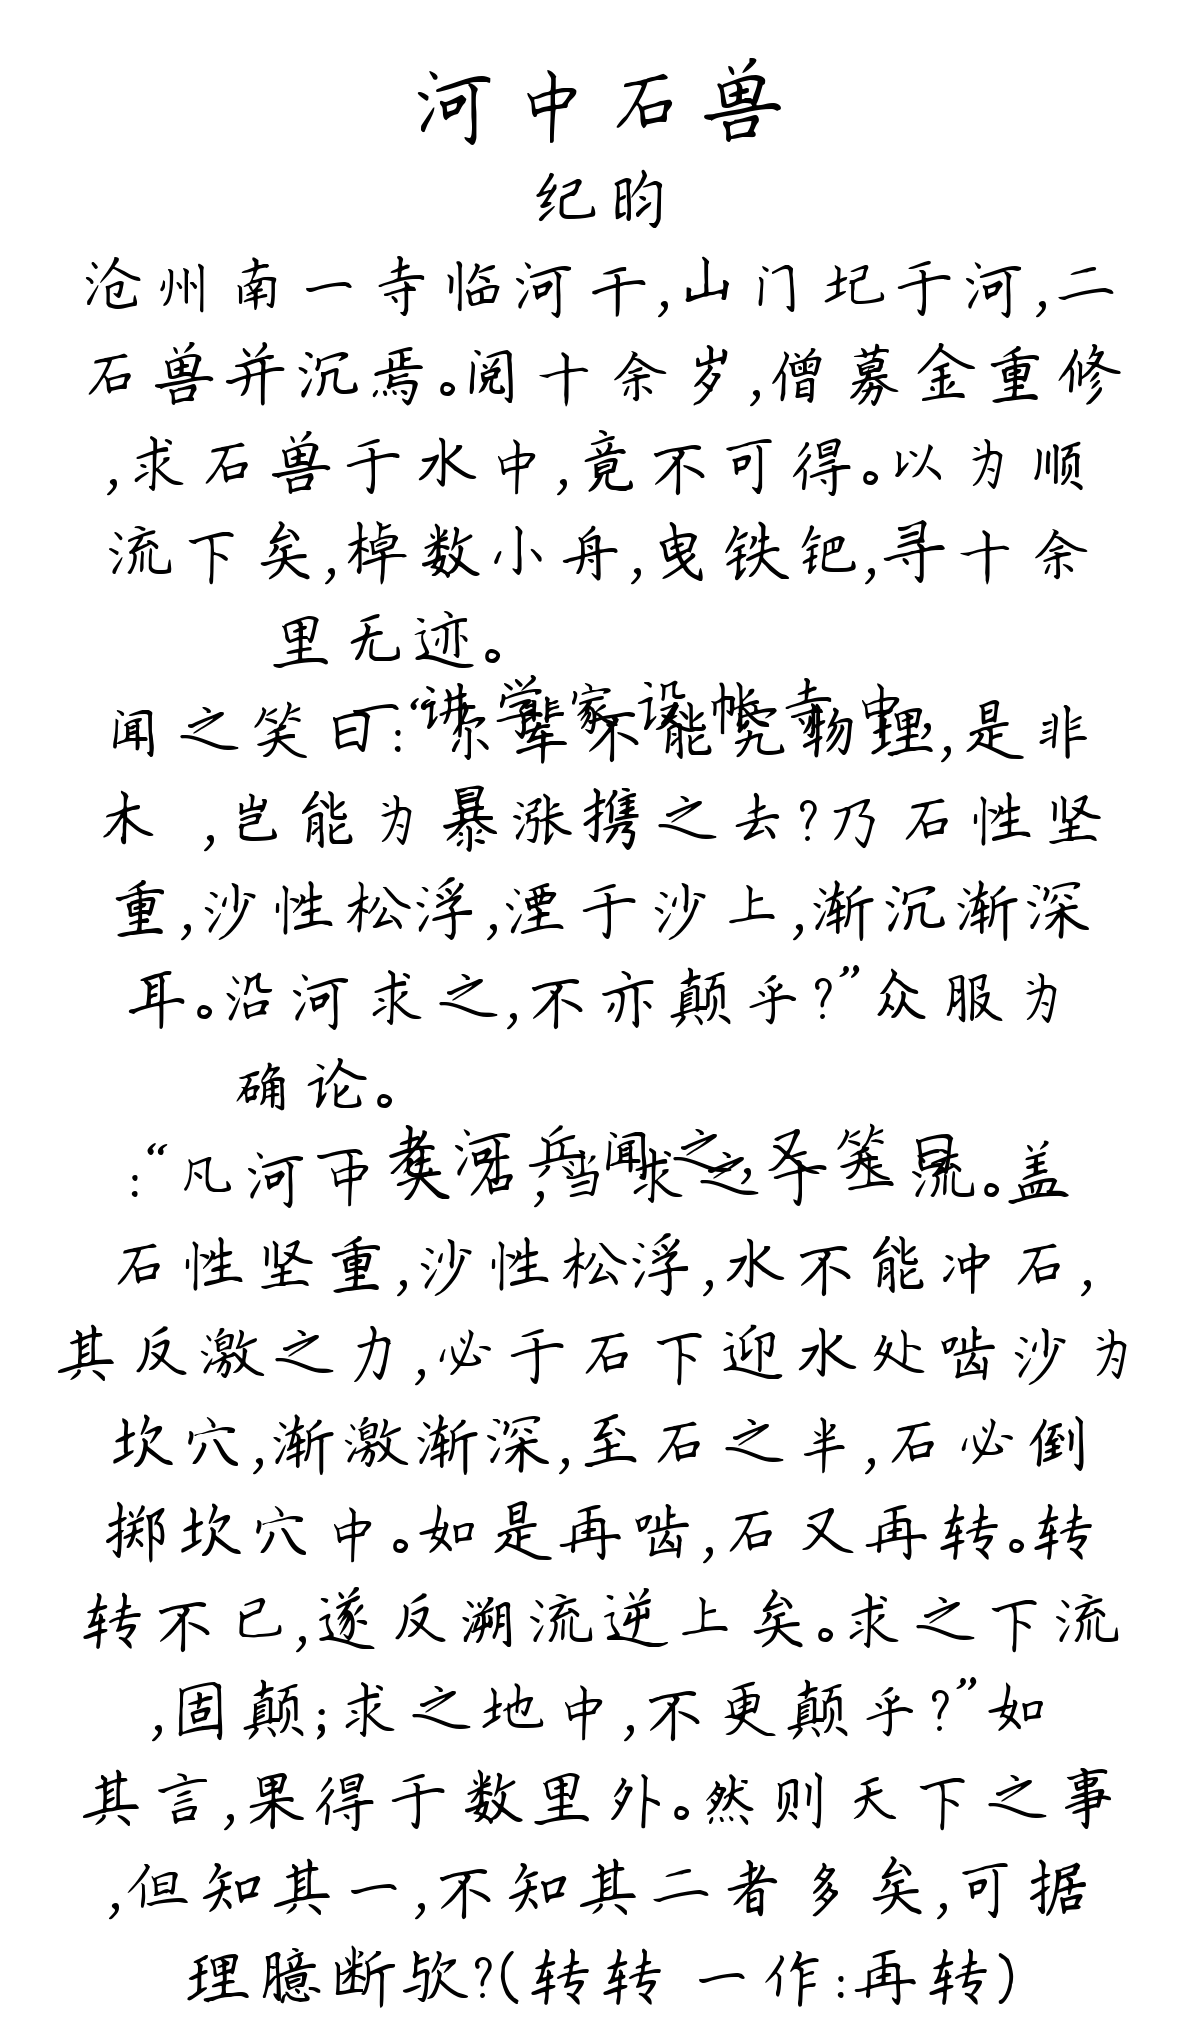 河中石兽
纪昀
沧州南一寺临河干,山门圮于河,二
石兽并沉焉。阅十余岁,僧募金重修
,求石兽于水中,竟不可得。以为顺
流下矣,棹数小舟,曳铁钯,寻十余
里无迹。
一讲学家设帐寺中,
闻之笑曰:“尔辈不能究物理,是非
木 ,岂能为暴涨携之去?乃石性坚
重,沙性松浮,湮于沙上,渐沉渐深
耳。沿河求之,不亦颠乎?”众服为
确论。
一老河兵闻之,又笑曰
:“凡河中失石,当求之于上流。盖
石性坚重,沙性松浮,水不能冲石,
其反激之力,必于石下迎水处啮沙为
坎穴,渐激渐深,至石之半,石必倒
掷坎穴中。如是再啮,石又再转。转
转不已,遂反溯流逆上矣。求之下流
,固颠;求之地中,不更颠乎?”如
其言,果得于数里外。然则天下之事
,但知其一,不知其二者多矣,可据
理臆断欤?(转转 一作:再转)